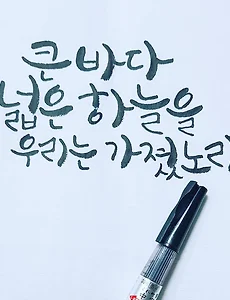 큰바다
넓은 하늘을
우리는 가졌노라